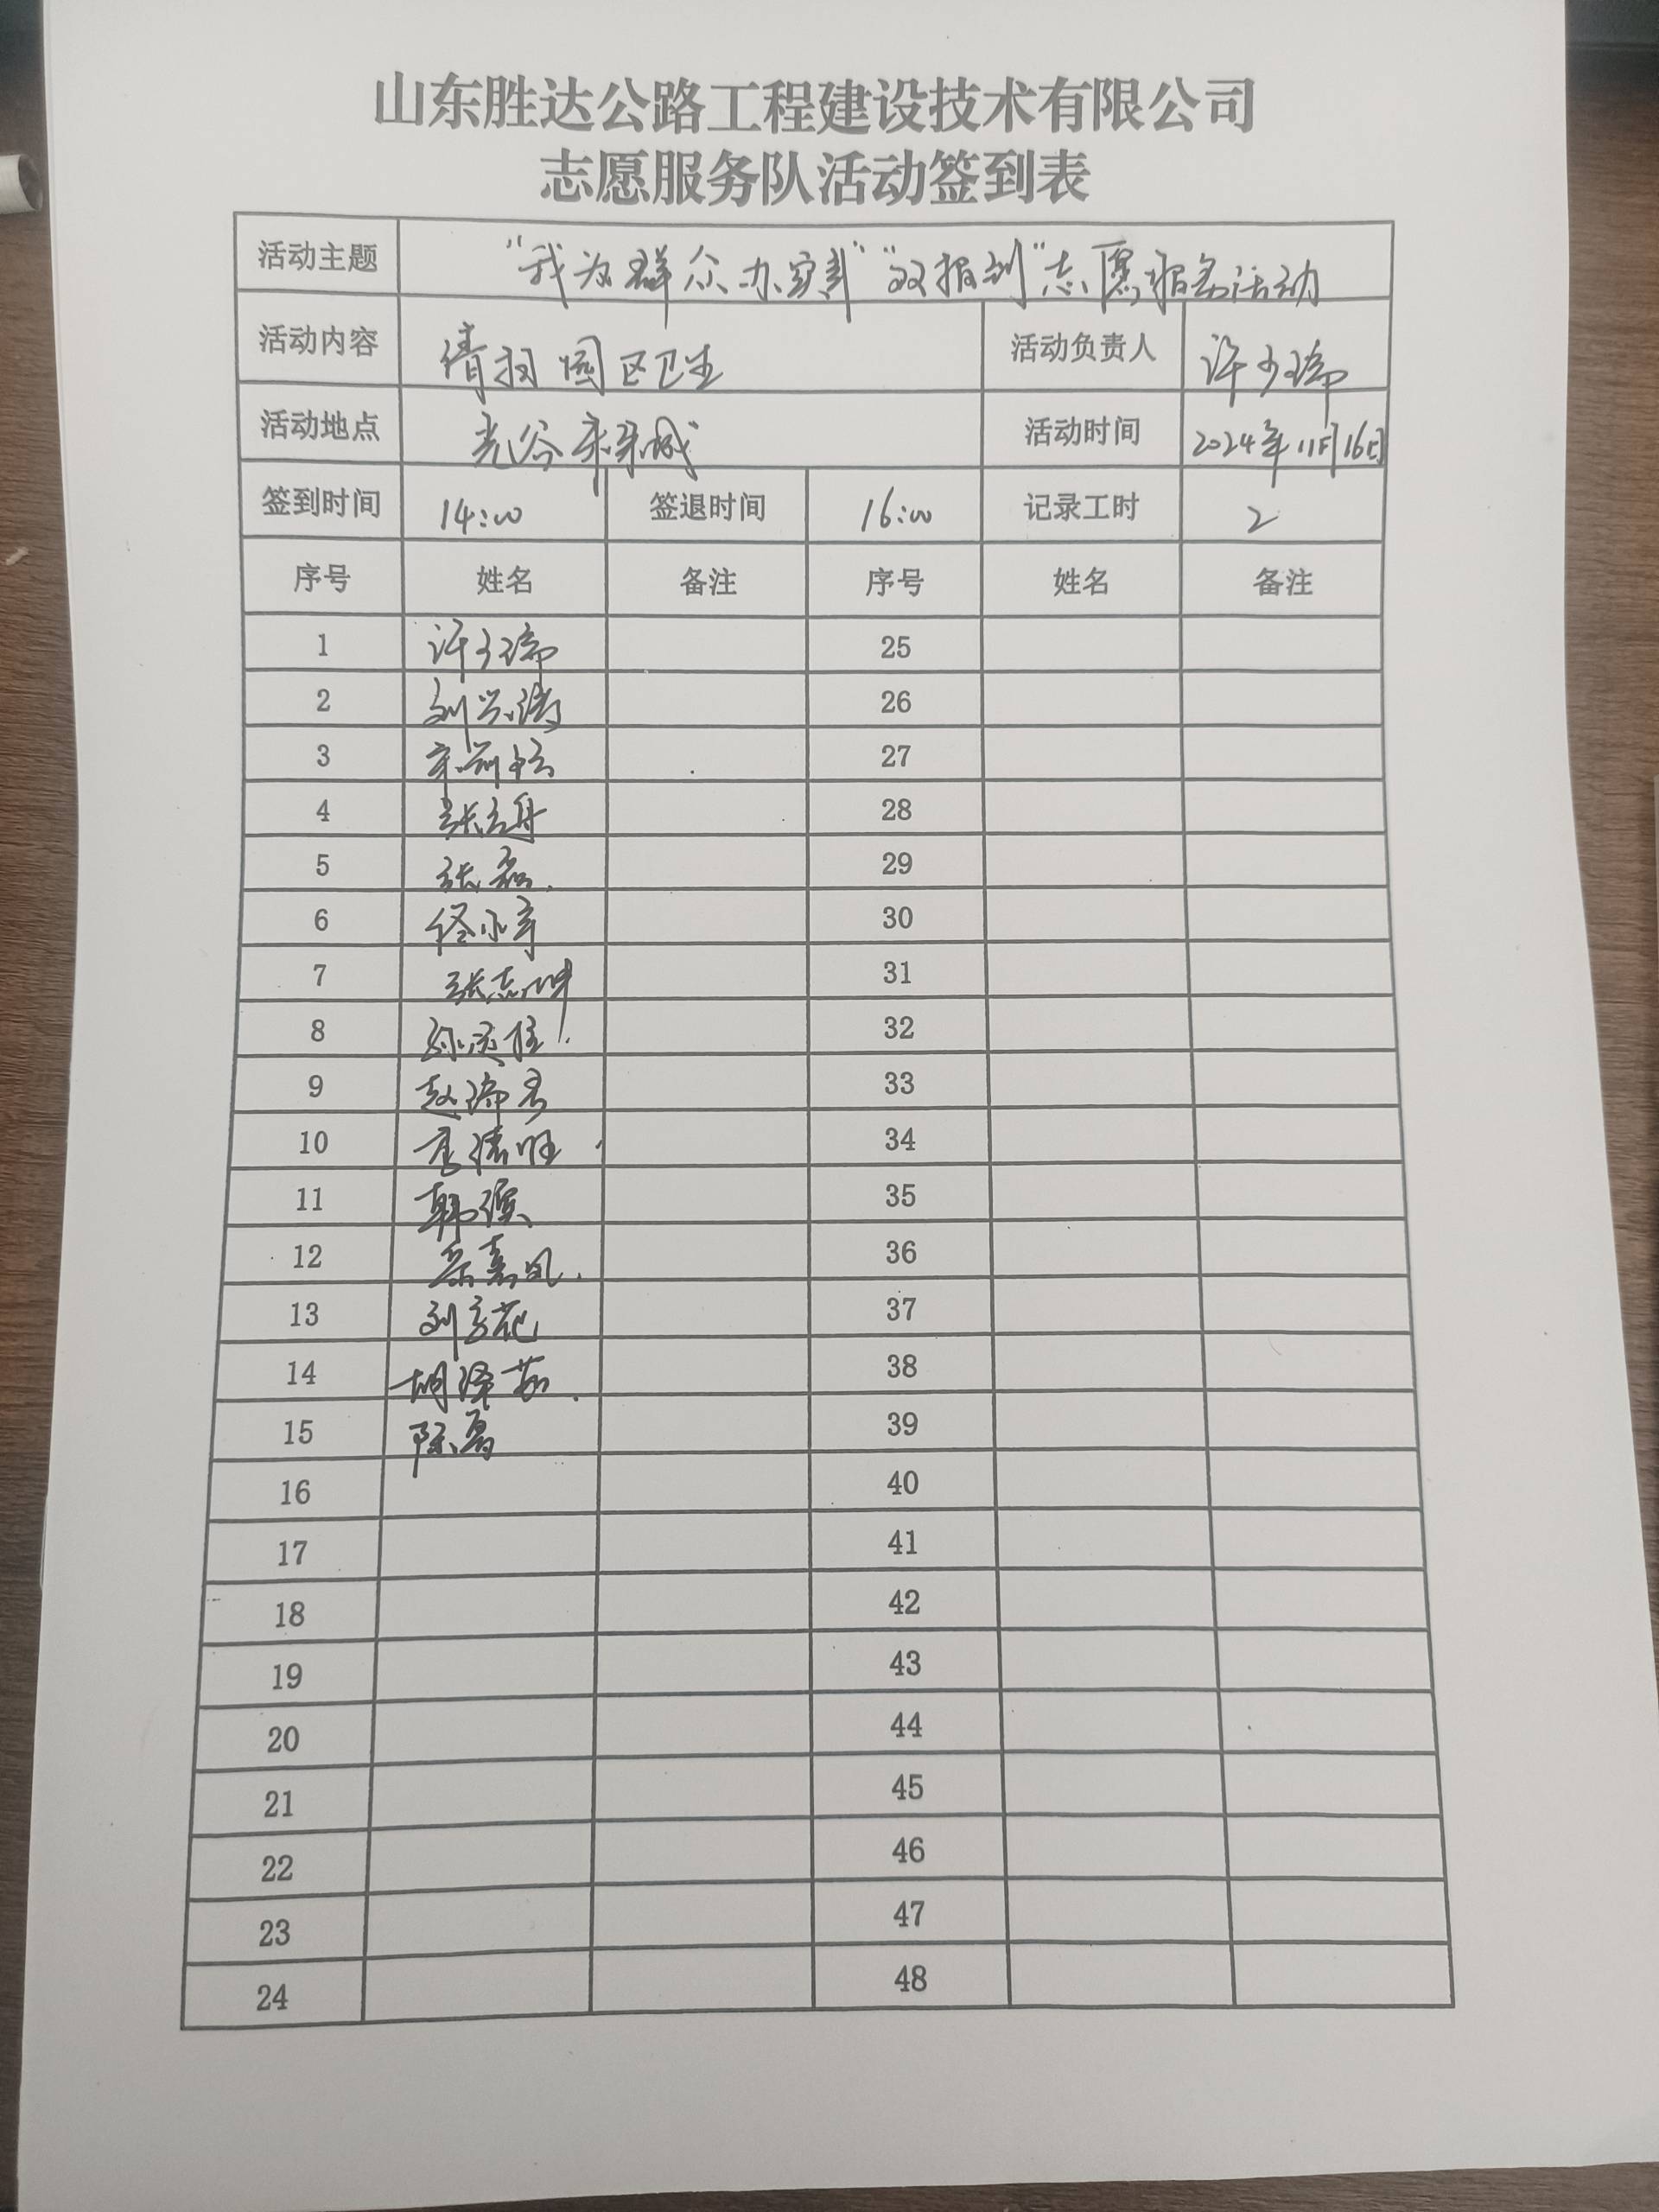 山东胜达公路工程建设技术有限公司
志愿服务队活动签到表
活动主题 "我为群众办实事""双报到"志愿服务活动
活动内容 清扫园区卫生 活动负责人 许少瑞
活动地点 光谷未来城 活动时间 2024年11月16日
签到时间 14:00 签退时间 16:00 记录工时 2
序号 姓名 备注 序号 姓名 备注
1 许少瑞 25
2 刘兴涛 26
3 27
4 张立舟 28
5 张磊 29
6 佟小辛 30
7 张志坤 31
8 孙庆佳 32
9 赵瑞君 33
10 李德旺 34
11 韩滨 35
12 36
13 刘方花 37
14 胡泽茹 38
15 陈昌 39
16 40
17 41
18 42
19 43
20 44
21 45
22 46
23 47
24 48